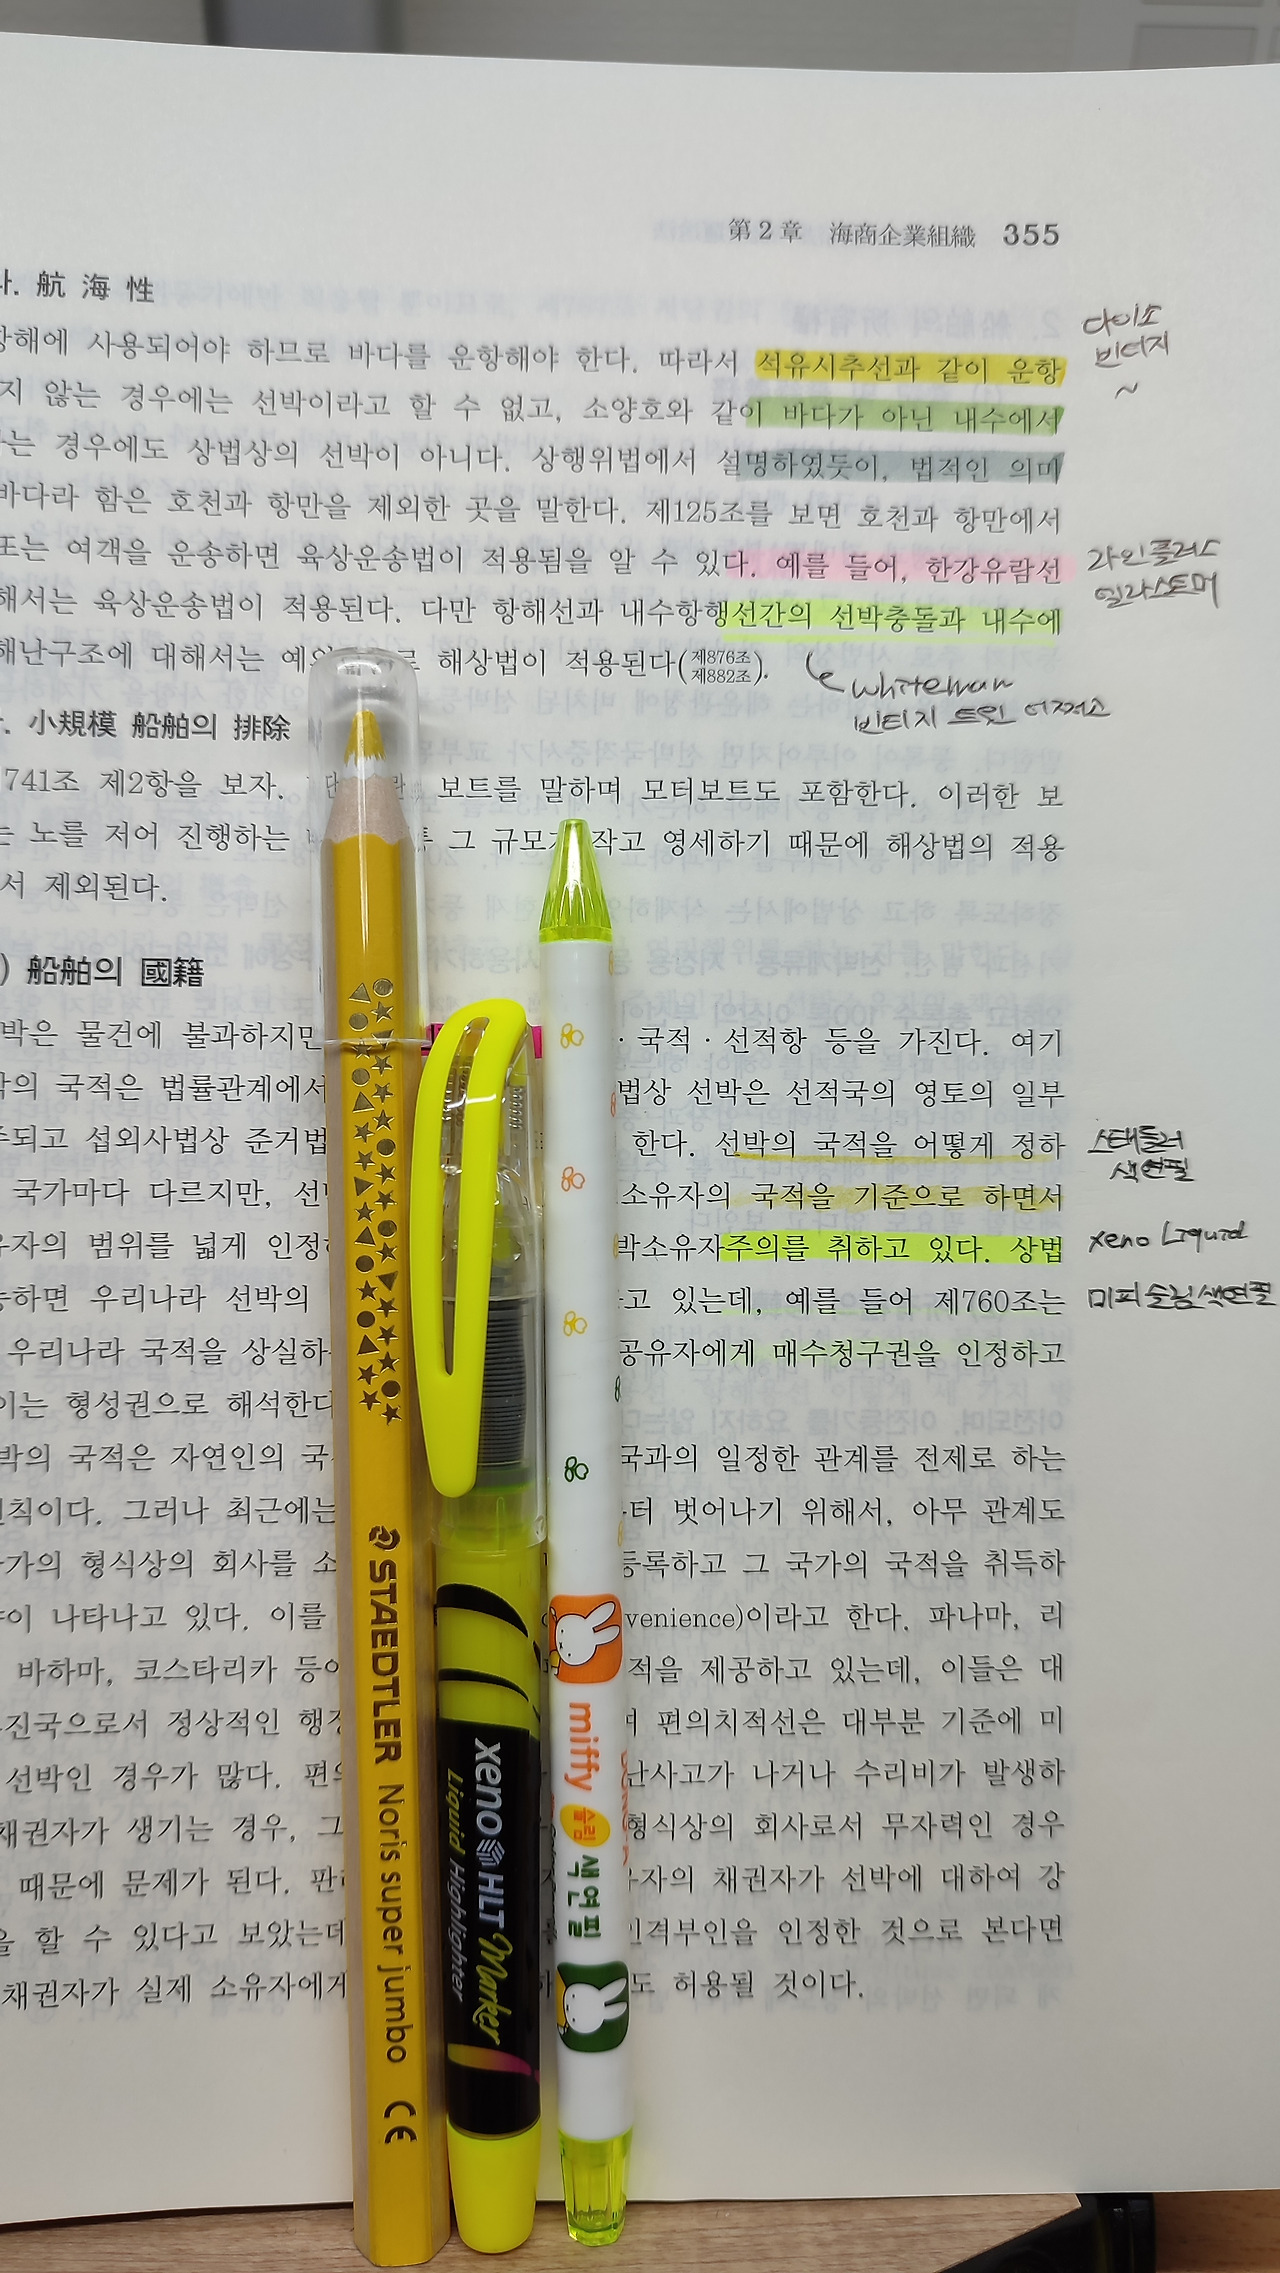 第 2 章 海商企業組織 355
航 海 性
다이소
빈티지
~
항해에 사용되어야 하므로 바다를 운항해야 한다. 따라서 석유시추선과 같이 운항
지 않는 경우에는 선박이라고 할 수 없고, 소양호와 같이 바다가 아닌 내수에서
는 경우에도 상법상의 선박이 아니다. 상행위법에서 설명하였듯이, 법적인 의미
바다라 함은 호천과 항만을 제외한 곳을 말한다. 제125조를 보면 호천과 항만에서
또는 여객을 운송하면 육상운송법이 적용됨을 알 수 있다. 예를 들어, 한강유람선
라인플러스
엘라스토머
해서는 육상운송법이 적용된다. 다만 항해선과 내수항행선간의 선박충돌과 내수에
해난구조에 대해서는 해상법이 적용된다(제876조 제882조).
whiteman
빈티지 트윈
. 小規模 船舶의 排除
741조 제2항을 보자. 보트를 말하며 모터보트도 포함한다. 이러한 보
는 노를 저어 진행하는 그 규모가 작고 영세하기 때문에 해상법의 적용
서 제외된다.
) 船舶의 國籍
박은 물건에 불과하지만 · 국적 · 선적항 등을 가진다. 여기
박의 국적은 법률관계에서 법상 선박은 선적국의 영토의 일부
주되고 섭외사법상 준거법 한다. 선박의 국적을 어떻게 정하
스태들러
색연필
국가마다 다르지만, 선 소유자의 국적을 기준으로 하면서
유자의 범위를 넓게 인정 박소유자주의를 취하고 있다. 상법
xeno Liquid
능하면 우리나라 선박의 고 있는데, 예를 들어 제760조는
미피슬림색연필
우리나라 국적을 상실하 공유자에게 매수청구권을 인정하고
이는 형성권으로 해석한다
박의 국적은 자연인의 국 국과의 일정한 관계를 전제로 하는
원칙이다. 그러나 최근에는 터 벗어나기 위해서, 아무 관계도
가의 형식상의 회사를 소 등록하고 그 국가의 국적을 취득하
이 나타나고 있다. 이를 venience)이라고 한다. 파나마, 리
바하마, 코스타리카 등이 적을 제공하고 있는데, 이들은 대
진국으로서 정상적인 행정 며 편의치적선은 대부분 기준에 미
선박인 경우가 많다. 편의 난사고가 나거나 수리비가 발생하
채권자가 생기는 경우, 그 형식상의 회사로서 무자력인 경우
때문에 문제가 된다. 판 유자의 채권자가 선박에 대하여 강
을 할 수 있다고 보았는데 인격부인을 인정한 것으로 본다면
채권자가 실제 소유자에게 도 허용될 것이다.
STAEDTLER Noris super jumbo CE
xeno HLT Marker
Liquid Highlighter
miffy 슬림 색연필